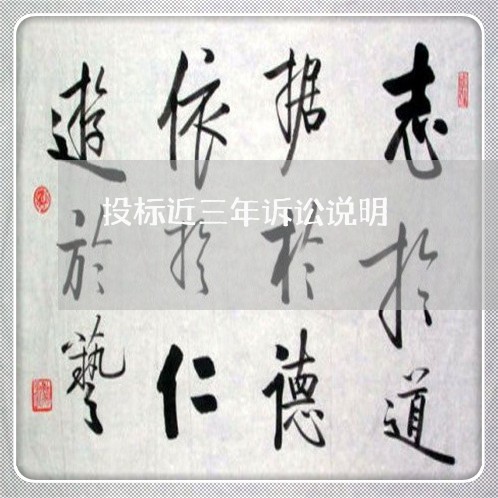 志於道
据於德
依於仁
遊於藝
投标近三年诉讼说明